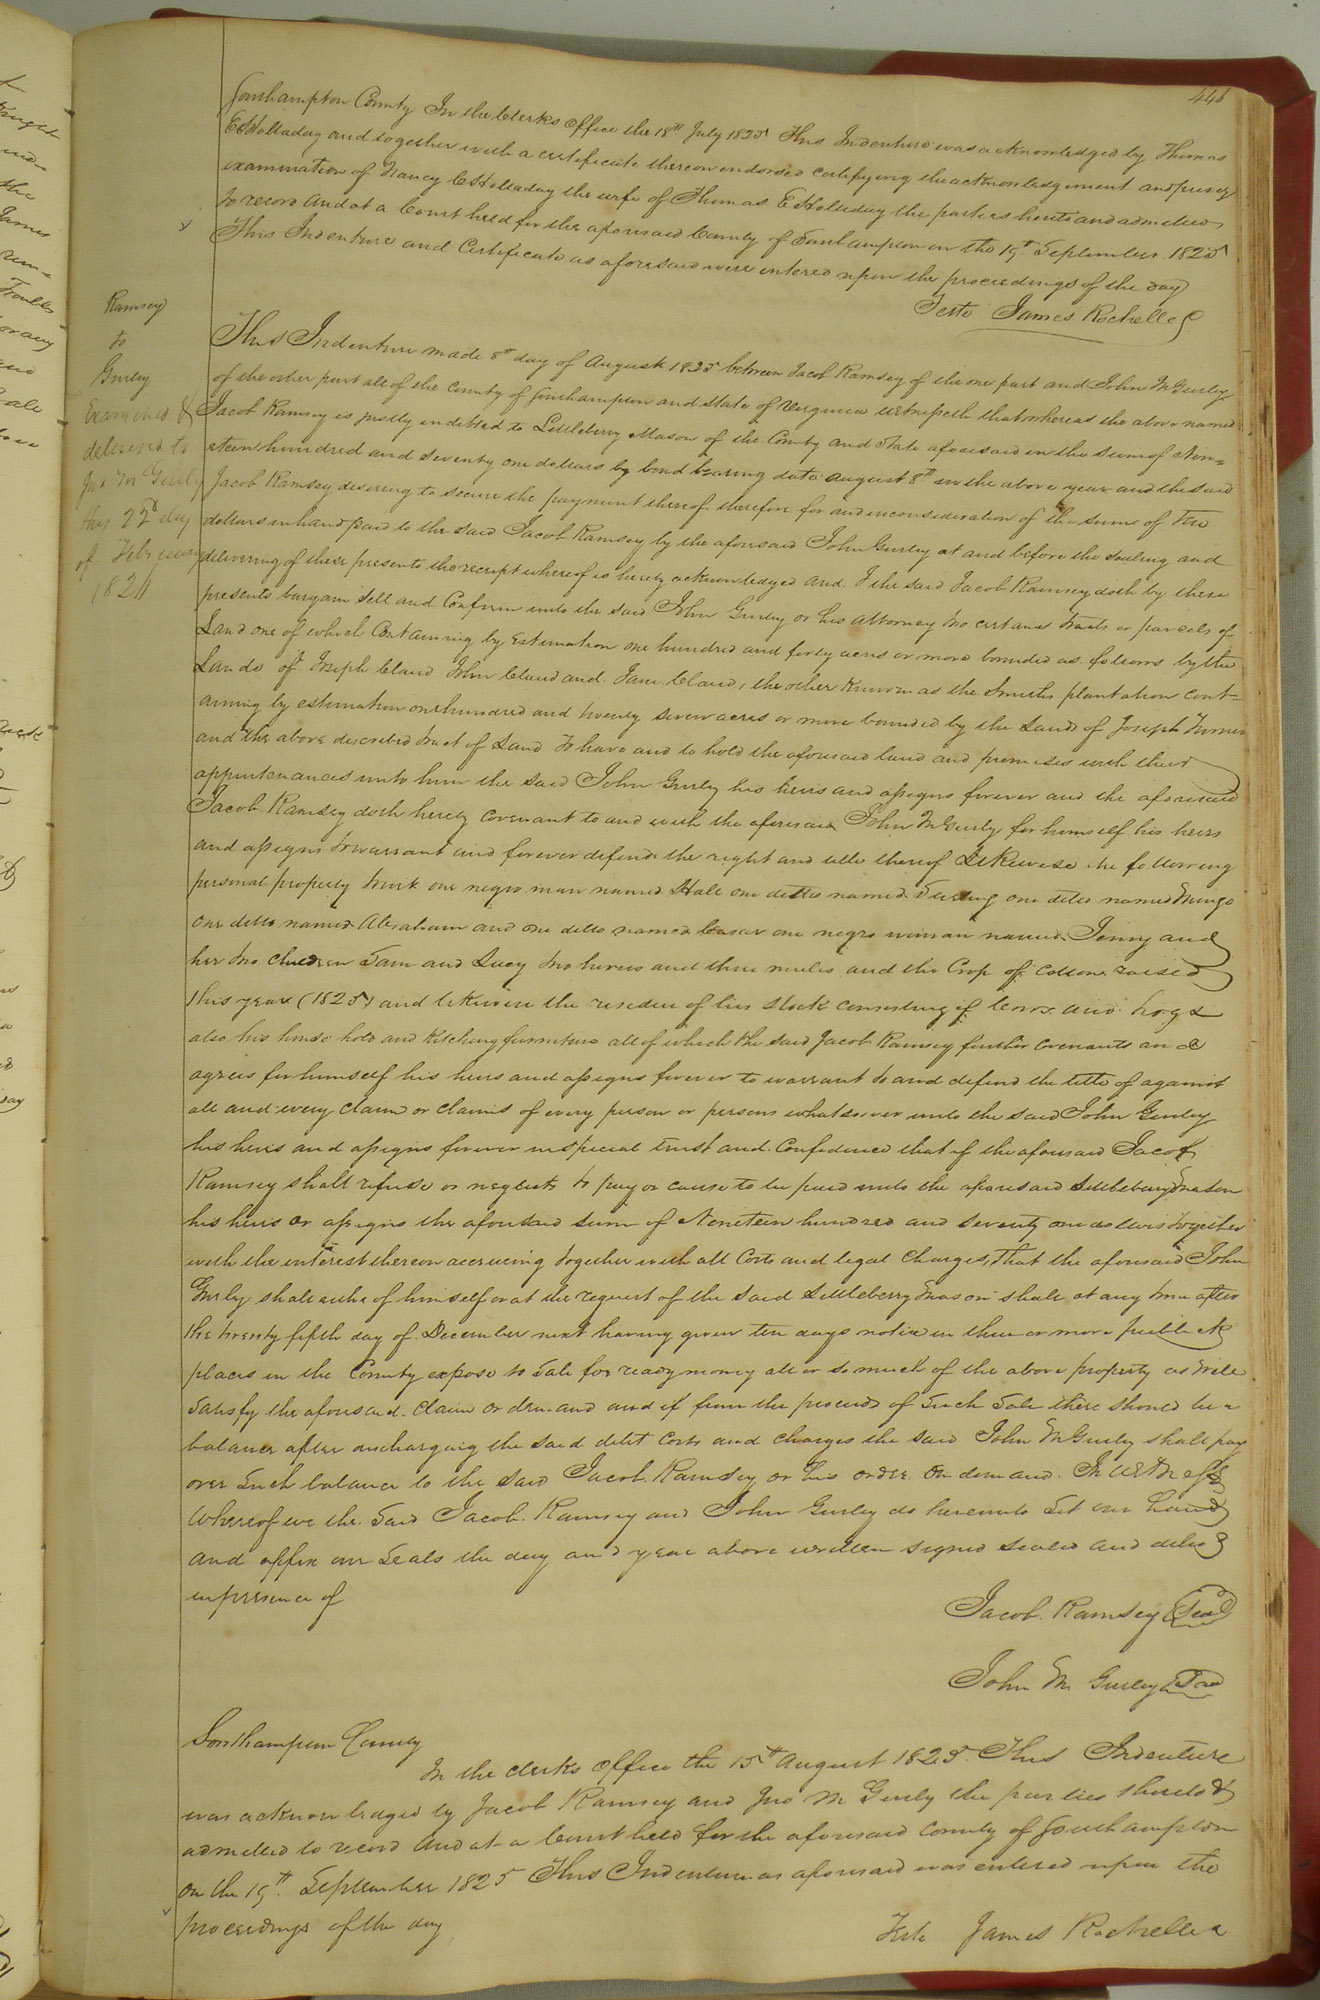 446
Southampton County In the Clerks office the 18th July 1825 This Indenture was acknowledged by Thomas
E Holladay and together with a certificate thereon endorsed certifying the acknowledgement and privy
examination of Nancy C Holladay the wife of Thomas E Holladay the parties hereto and admitted
to record And at a Court held for the aforesaid County of Southampton on the 19th September 1825
This Indenture and Certificate as aforesaid were entered upon the proceedings of the day
Teste James Rochelle C
Ramsey
to
Gurley
Examined &
delivered to
Jno M Gurley
this 22d day
of February
182
This Indenture made 8th day of August 1825 between Jacob Ramsey of the one part and John M Gurley
of the other part all of the County of Southampton and State of Virginia Witnesseth that whereas the above named
Jacob Ramsey is justly indebted to Littleberry Mason of the County and State aforesaid in the sum of Nin=
eteen hundred and seventy one dollars by bond bearing date August 8th in the above year and the said
Jacob Ramsey desiring to secure the payment thereof therefore for and in consideration of the sum of two
dollars in hand paid to the said Jacob Ramsey by the aforesaid John Gurley at and before the sealing and
delivering of these presents the receipt whereof is hereby acknowledged and I the said Jacob Ramsey doth by these
presents bargain sell and Confirm unto the said John Gurley or his attorney two certain tracts or parcels of
Land one of which Containing by Estimation one hundred and forty acres or more bounded as follows by the
Lands of Joseph Claud John Claud and Jane Claud, the other known as the Smiths plantation cont=
aining by estimation one hundred and twenty seven acres or more bounded by the Land of Joseph Turner
and the above described tract of Land To have and to hold the aforesaid land and premises with their
appurtenances unto him the said John Gurley his heirs and assigns forever and the aforesaid
Jacob Ramsey doth hereby covenant to and with the aforesaid John M Gurley for himself his heirs
and assigns to warrant and forever defend the right and title thereof Likewise the following
personal property to wit one negro man named Hall one ditto named one ditto named Mingo
One ditto named Abraham and one ditto named Ceasar one negro woman named Jenny and
her two children Sam and Lucy two horses and three mules and the Crop of cotton raised
this year (1825) and likewise the residue of his stock consisting of Cows and hogs &
also his house hold and Kitching furniture all of which the said Jacob Ramsey further covenants and
agrees for himself his heirs and assigns forever to warrant to and defend the title of against
all and every claim or claims of every person or persons whatsoever unto the said John Gurley
his heirs and assigns forever in special trust and Confidence that if the aforesaid Jacob
Ramsey shall refuse or neglects to pay or cause to be paid unto the aforesaid Littleberry Mason
his heirs or assigns the aforesaid sum of Nineteen hundred and seventy one dollars together
with the interest thereon accruing together with all Costs and legal Charges, that the aforesaid John
Gurley shall either of himself or at the request of the said Littleberry Mason shall at any time after
the twenty fifth day of December next having given ten days notice in three or more publick
places in the County expose to sale for ready money all or so much of the above property as will
satisfy the aforesaid claim or demand and if from the proceeds of such sale there should be a
balance after discharging the said debt costs and charges the said John M Gurley shall pay
over such balance to the said Jacob Ramsey or his order on demand. In Witness
Whereof we the said Jacob Ramsey and John Gurley do hereunto set our hands
and affix our seals the day and year above written signed sealed and delid
in presence of
Jacob Ramsey Seal
John M Gurley Seal
Southampton County
In the clerks office the 15th August 1825 This Indenture
was acknowledged by Jacob Ramsey and Jno M Gurley the parties thereto &
admitted to record And at a Court held for the aforesaid County of Southampton
on the 19th September 1825 This Indenture as aforesaid was entered upon the
proceedings of the day
Teste James Rochelle C